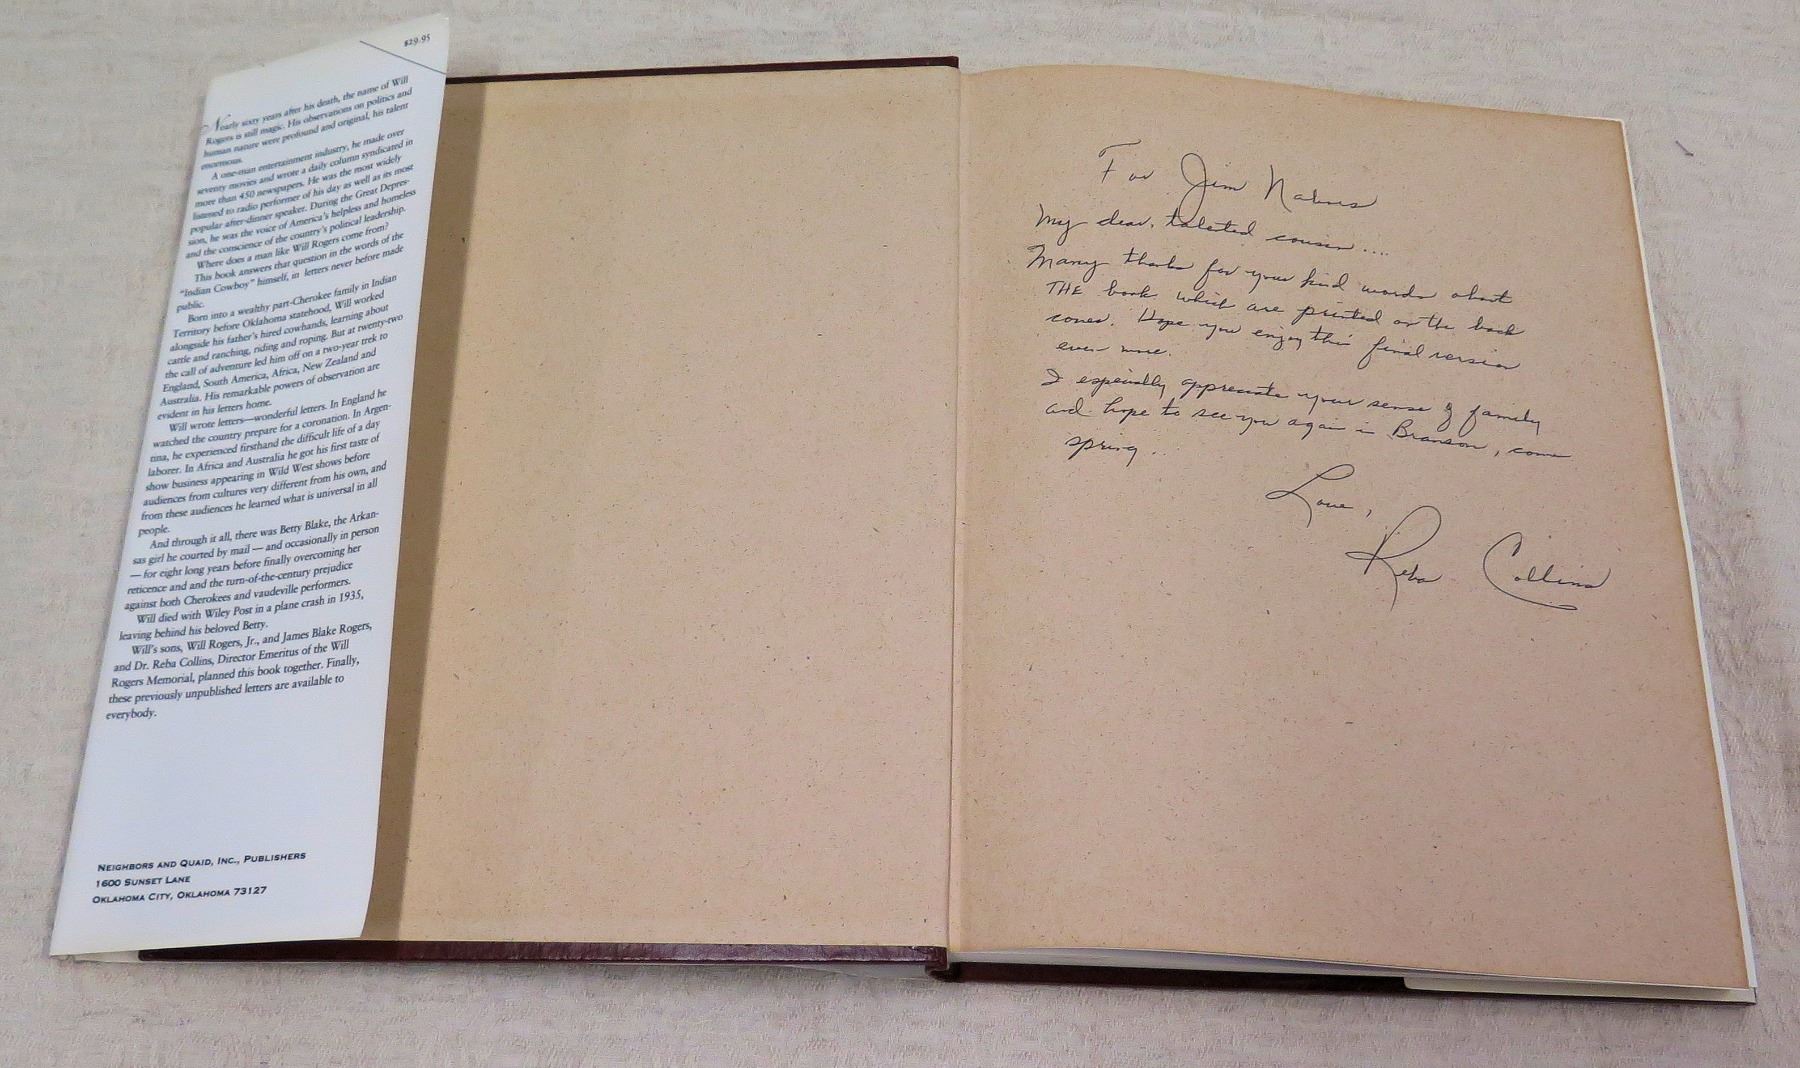 $29.95
Nearly sixty years after his death, the name of Will
Rogers is still magic. His observations on politics and
human nature were profound and original, his talent
enormous.
A one-man entertainment industry, he made over
seventy movies and wrote a daily column syndicated in
more than 450 newspapers. He was the most widely
listened to radio performer of his day as well as its most
popular after-dinner speaker. During the Great Depres-
sion, he was the voice of America's helpless and homeless
and the conscience of the country's political leadership.
Where does a man like Will Rogers come from?
This book answers that question in the words of the
"Indian Cowboy" himself, in letters never before made
public.
Born into a wealthy part-Cherokee family in Indian
Territory before Oklahoma statehood, Will worked
alongside his father's hired cowhands, learning about
cattle and ranching, riding and roping. But at twenty-two
the call of adventure led him off on a two-year trek to
England, South America, Africa, New Zealand and
Australia. His remarkable powers of observation are
evident in his letters home.
Will wrote letters—wonderful letters. In England he
watched the country prepare for a coronation. In Argen-
tina, he experienced firsthand the difficult life of a day
laborer. In Africa and Australia he got his first taste of
show business appearing in Wild West shows before
audiences from cultures very different from his own, and
from these audiences he learned what is universal in all
people.
And through it all, there was Betty Blake, the Arkan-
sas girl he courted by mail — and occasionally in person
— for eight long years before finally overcoming her
reticence and and the turn-of-the-century prejudice
against both Cherokees and vaudeville performers.
Will died with Wiley Post in a plane crash in 1935,
leaving behind his beloved Betty.
Will's sons, Will Rogers, Jr., and James Blake Rogers,
and Dr. Reba Collins, Director Emeritus of the Will
Rogers Memorial, planned this book together. Finally,
these previously unpublished letters are available to
everybody.
NEIGHBORS AND QUAID, INC., PUBLISHERS
1600 SUNSET LANE
OKLAHOMA CITY, OKLAHOMA 73127
For Jim Nabors
My dear, talented cousin....
Many thanks for your kind words about
THE book which are printed on the back
cover. Hope you enjoy this final version
even more.
I especially appreciate your sense of family
and hope to see you again in Branson, come
spring...
Love,
Reba Collins